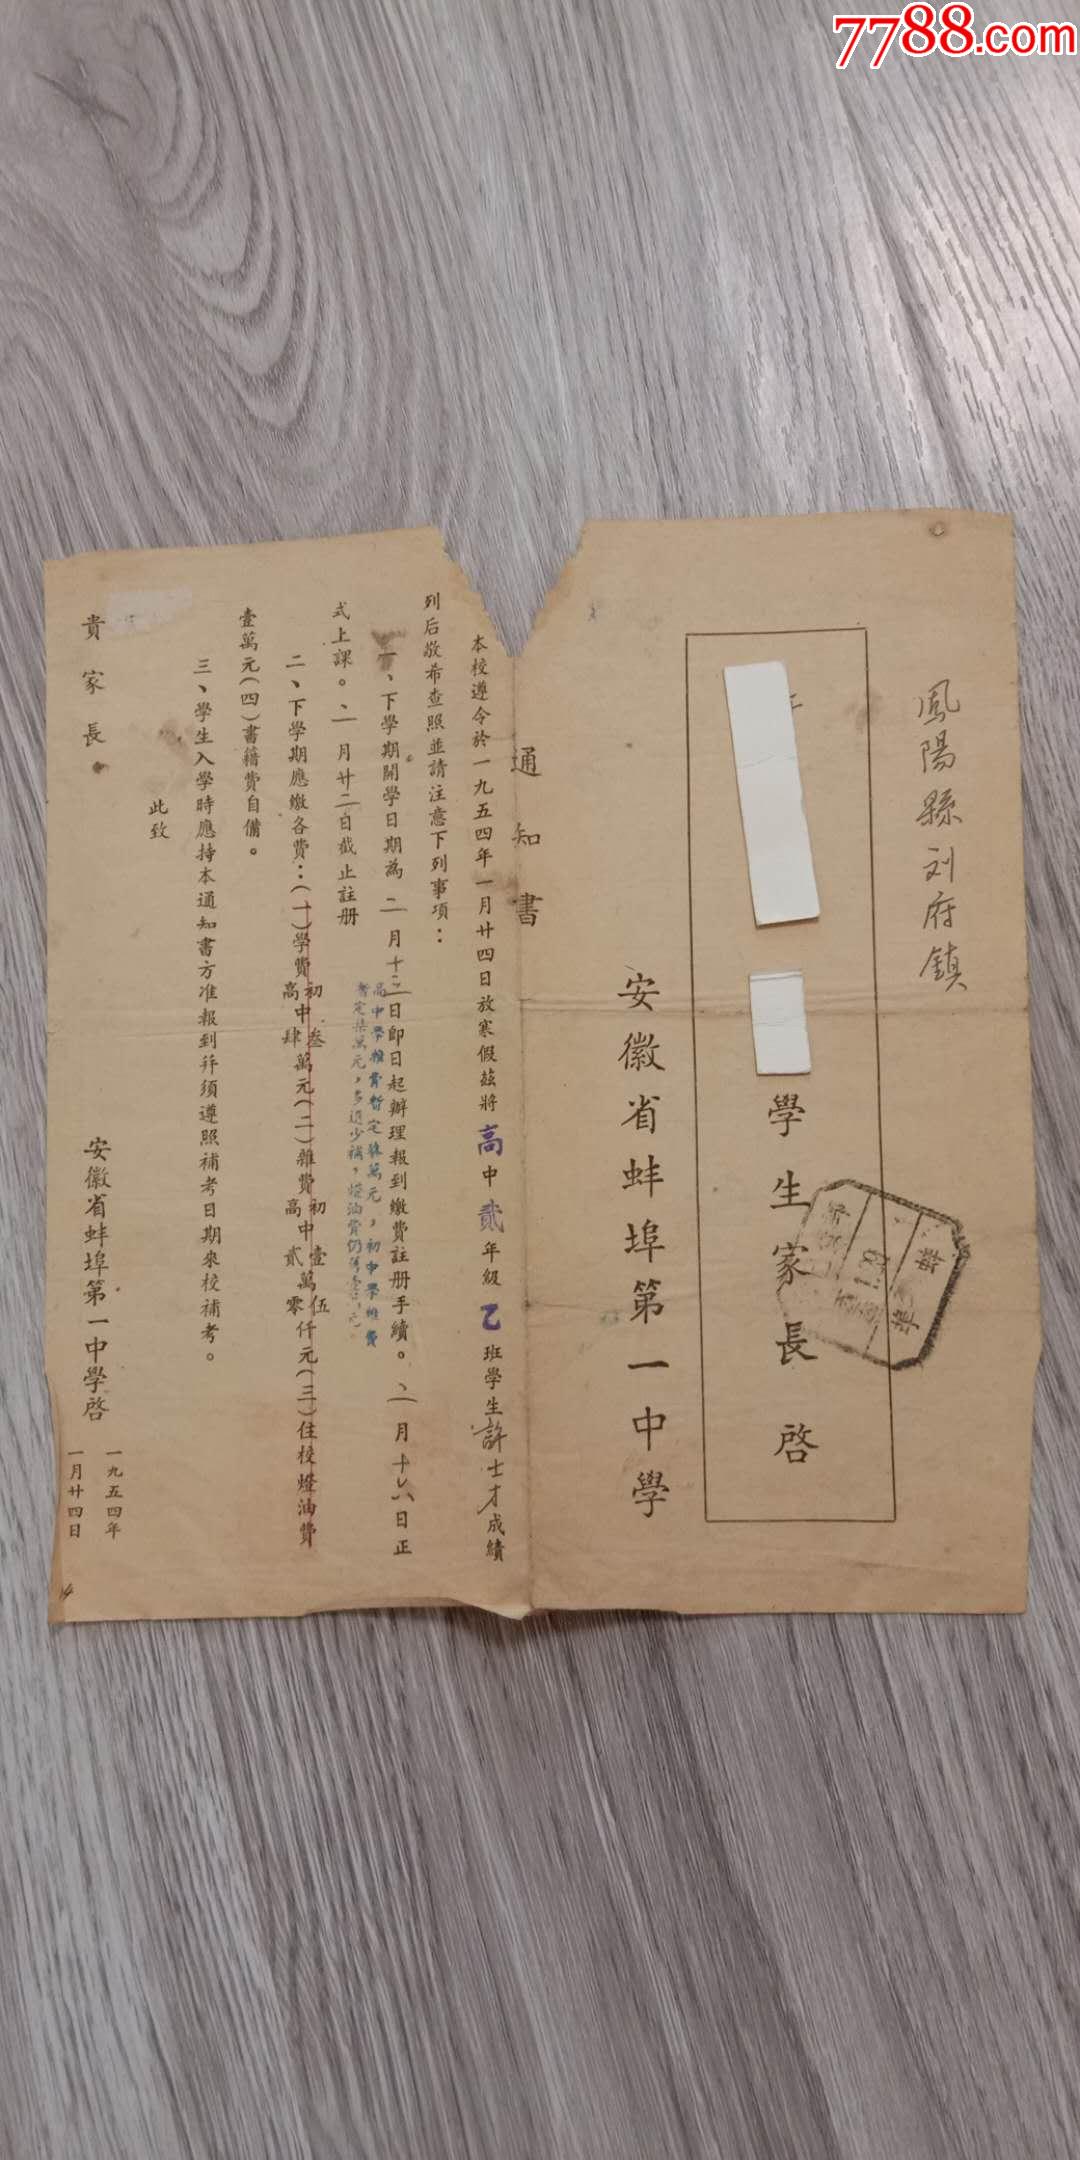 7788.com
鳳陽縣刘府鎮
學生家長 啓
安徽省蚌埠第一中學
通知書
本校遵令於一九五四年一月廿四日放寒假茲將高中貳年級乙班學生許士才成績
列后敬希查照並請注意下列事項：
一、下學期開學日期為二月十二日即日起辦理報到繳費註册手續。二月十八日正
高中學雜費暫定
萬元，初中學雜費
暫定柒萬元，多退少補，燈油費仍
式上課。二月廿二日截止註册
二、下學期應繳各費：（一）學費初中叁高肆萬元（二）雜費初中壹萬伍高貳零仟元（三）住校燈油費
壹萬元（四）書籍費自備。
三、學生入學時應持本通知書方准報到并須遵照補考日期來校補考。
此致
貴家長
安徽省蚌埠第一中學啓
一九五四年
一月廿四日